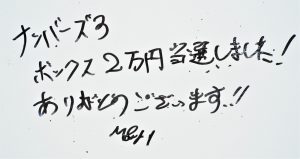 ナンバーズ3
ボックス2万円当選しました!
ありがとうございます!!